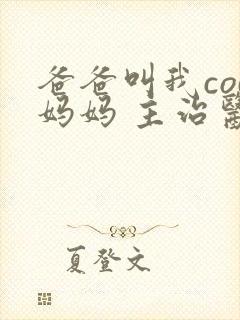 爸爸叫我co
妈妈 主治醫
夏登文